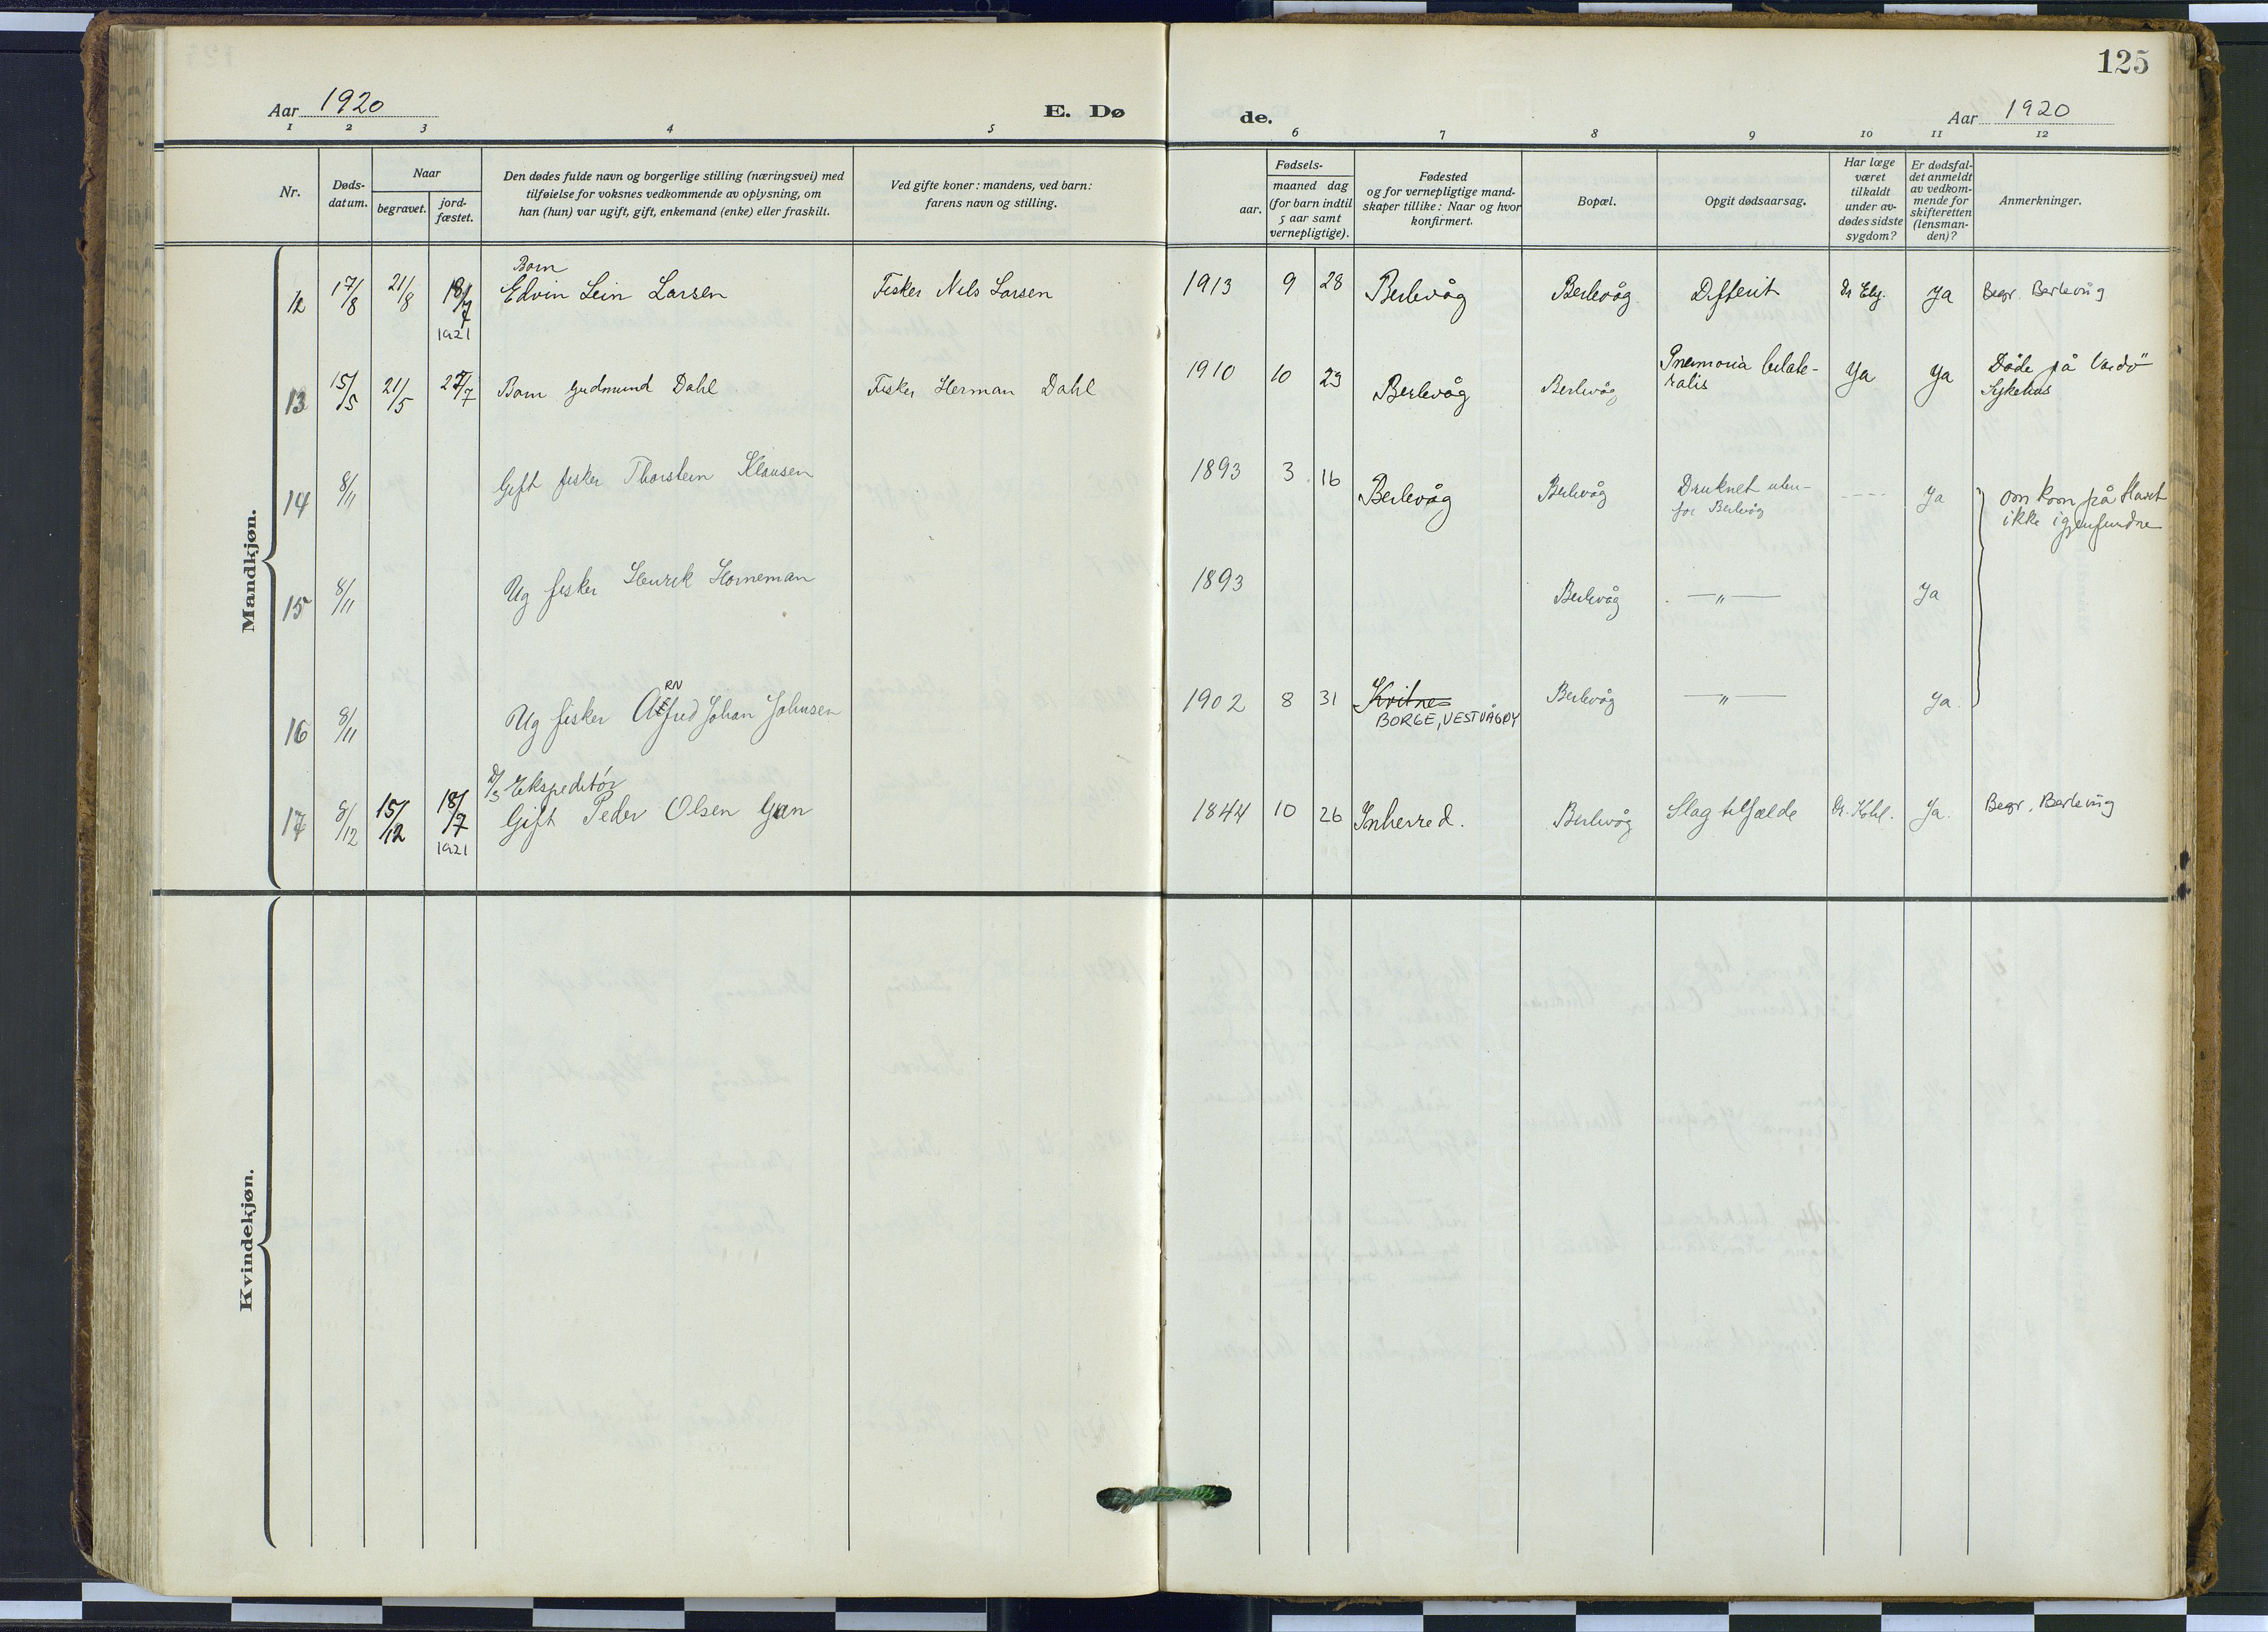 125
Aar 1920
E. Dø
de.
Aar 1920
1 2 3 4 5
6 7 8 9 10 11 12
Nr.
Døds-
datum.
Naar
begravet.
jord-
fæstet.
Den dødes fulde navn og borgerlige stilling (næringsvei) med
tilføielse for voksnes vedkommende av oplysning, om
han (hun) var ugift, gift, enkemand (enke) eller fraskilt.
Ved gifte koner: mandens, ved barn:
farens navn og stilling.
Fødsels-
aar.
maaned dag
(for barn indtil
5 aar samt
vernepligtige).
Fødested
og for vernepligtige mand-
skaper tillike: Naar og hvor
konfirmert.
Bopæl.
Opgit dødsaarsag.
Har læge
været
tilkaldt
under av-
dødes sidste
sygdom?
Er dødsfal-
det anmeldt
av vedkom-
mende for
skifteretten
(lensman-
den)?
Anmerkninger.
Mandkjøn.
Barn
12 17/8 21/8 18/7 Edvin Lein Larsen Fisker Nils Larsen 1913 9 28 Berlevåg Berlevåg Difterit Dr Elg. Ja Begr. Berlevåg
1921
13 15/5 21/5 27/7 Barn Gudmund Dahl Fisker Herman Dahl 1910 10 23 Berlevåg Berlevåg Pneimonia bilate- Ja Ja Døde på Vardö
ralis Sykehus
14 8/11 Gift fisker Thorstein Klausen 1893 3 16 Berlevåg Berlevåg Druknet uten- ---- Ja omkom på Havet
for Berlevåg ikke igjenfundne
15 8/11 Ug fisker Henrik Horneman 1893 Berlevåg —"— Ja
RN
16 8/11 Ug fisker Alfred Johan Johnsen 1902 8 31 Kvitnes Berlevåg —"— Ja.
BORGE, VESTVÅGØY
D/S Ekspeditør
17 8/12 15/12 18/7 Gift Peder Olsen Gan 1844 10 26 Inherred. Berlevåg Slagtilfælde Dr. Kohl. Ja. Begr. Berlevåg
1921
Kvindekjøn.